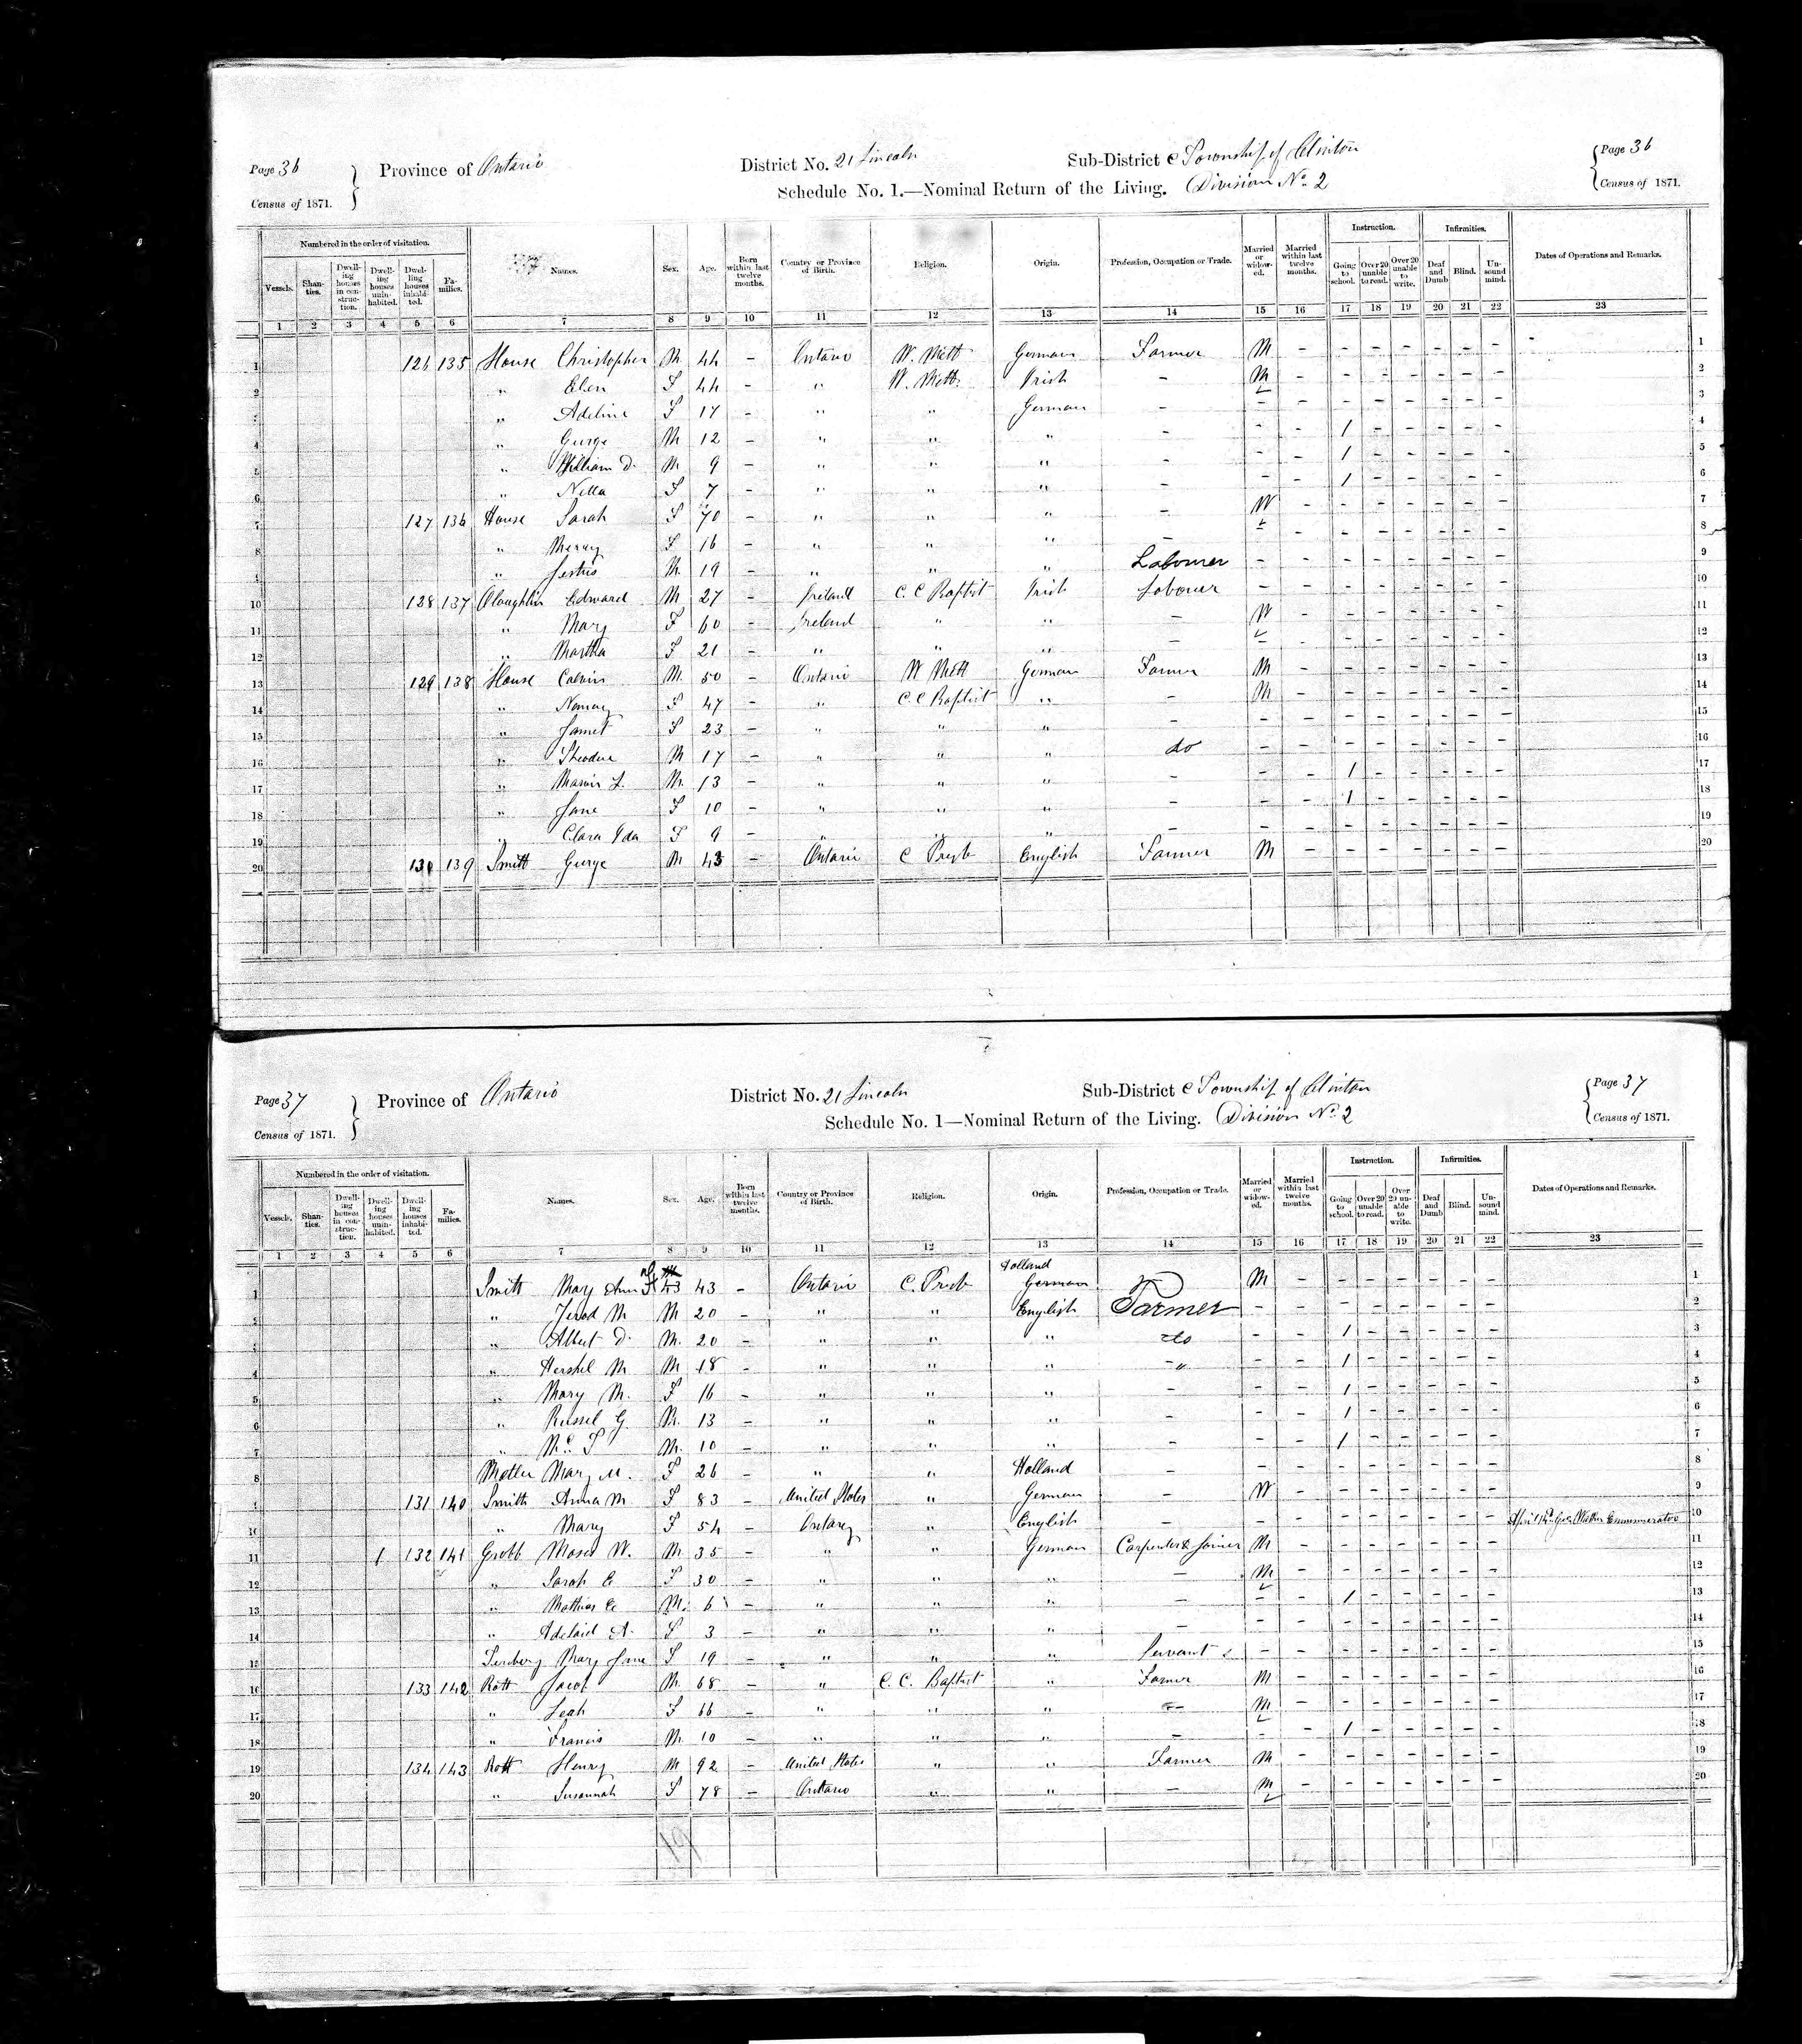 Page 36
Province of Ontario
District No. 21 Lincoln
Sub-District C Township of Clinton
Page 36
Census of 1871.
Schedule No. 1.—Nominal Return of the Living. Division No. 2
Census of 1871.
Numbered in the order of visitation.
Instruction.
Infirmities.
Vessels. Shanties. Dwelling houses in construction. Dwelling houses uninhabited. Dwelling houses inhabited. Families. Names. Sex. Age. Born within last twelve months. Country or Province of Birth. Religion. Origin. Profession, Occupation or Trade. Married or widowed. Married within last twelve months. Going to school. Over 20 unable to read. Over 20 unable to write. Deaf and Dumb Blind. Unsound mind. Dates of Operations and Remarks.
1 2 3 4 5 6 7 8 9 10 11 12 13 14 15 16 17 18 19 20 21 22 23
1 126 135 House Christopher M 44 – Ontario W. Meth German Farmer M – – – – – – – 1
2 " Elen F 44 – " W. Meth. Irish – M – – – – – – – 2
3 " Adeline F 17 – " " German – – – – – – – – – 3
4 " Gurge M 12 – " " " – – – 1 – – – – – 4
5 " William D. M. 9 – " " " – – – 1 – – – – – 5
6 " Nella F 7 – " " " – – – 1 – – – – – 6
7 127 136 House Sarah F 70 – " " " – W – – – – – – – 7
8 " F 16 – " " " – – – – – – – – – 8
9 " M. 19 – " " " Labourer – – – – – – – – 9
10 128 137 Oloughlin Edward M 27 – Ireland C. C Baptist Irish Labourer – – – – – – – – 10
11 " Mary F 60 – Ireland " " – W – – – – – – – 11
12 " Martha F 21 – " " " – – – – – – – – – 12
13 129 138 House Calvin M. 50 – Ontario W Meth German Farmer M – – – – – – – 13
14 " Nancy F 47 – " C C Baptist " – M – – – – – – – 14
15 " F 23 – " " " – – – – – – – – – 15
16 " Theodore M 17 – " " " do – – – – – – – – 16
17 " M. 13 – " " " – – – 1 – – – – – 17
18 " Jane F 10 – " " " – – – 1 – – – – – 18
19 " Clara Ida F 9 – " " " – – – – – – – – – 19
20 130 139 Smith Gurge M 43 – Ontario C Presb English Farmer M – – – – – – – 20
Page 37
Province of Ontario
District No. 21 Lincoln
Sub-District C Township of Clinton
Page 37
Census of 1871.
Schedule No. 1—Nominal Return of the Living. Division No. 2
Census of 1871.
Numbered in the order of visitation.
Instruction.
Infirmities.
Vessels. Shanties. Dwelling houses in construction. Dwelling houses uninhabited. Dwelling houses inhabited. Families. Names. Sex. Age. Born within last twelve months. Country or Province of Birth. Religion. Origin. Profession, Occupation or Trade. Married or widowed. Married within last twelve months. Going to school. Over 20 unable to read. Over 20 unable to write. Deaf and Dumb Blind. Unsound mind. Dates of Operations and Remarks.
1 2 3 4 5 6 7 8 9 10 11 12 13 14 15 16 17 18 19 20 21 22 23
Holland
1 Smith Mary Ann F 43 43 – Ontario C. Presb German – M – – – – – – – 1
2 " M M 20 – " " English Farmer – – – – – – – – 2
3 " Albert D. M. 20 – " " " do – – 1 – – – – – 3
4 " Hershel M M 18 – " " " " – – 1 – – – – – 4
5 " Mary M. F 16 – " " " – – – 1 – – – – – 5
6 " Russel G. M. 13 – " " " – – – 1 – – – – – 6
7 " M. 10 – " " " – – – 1 – – – – – 7
8 Mary M. F 26 – " " Holland – – – – – – – – – 8
9 131 140 Smith Anna M F 83 – United States " German – W – – – – – – – 9
10 " Mary F 54 – Ontary " English – – – – – – – – – April Enumerator 10
11 1 132 141 Grobb Moses W. M. 35 – " " German Carpenter & Joiner M – – – – – – – 11
12 " Sarah E F 30 – " " " – M – – – – – – – 12
13 " Mathias E M. 6 – " " " – – – 1 – – – – – 13
14 " Adelaid A. F 3 – " " " – – – – – – – – – 14
15 Mary Jane F 19 – " " " Servant – – – – – – – – 15
16 133 142 Rott Jacob M. 68 – " C. C. Baptist " Farmer M – – – – – – – 16
17 " Leah F 66 – " " " – M – – – – – – – 17
18 " Francis M. 10 – " " " – – – 1 – – – – – 18
19 134 143 Rott Henry M 92 – United States " " Farmer M – – – – – – – 19
20 " Susannah F 78 – Ontario " " – M – – – – – – – 20
19